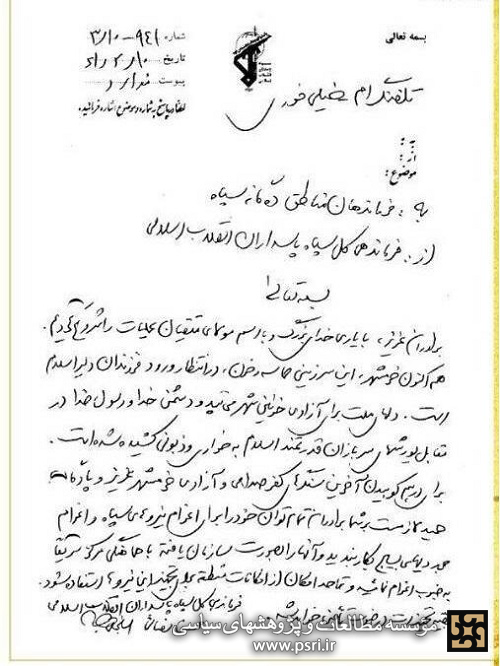 بسمه تعالی
شماره ۹۴۱-۳/۱۰
تاریخ
پیوست ندارد
لطفاً پاسخ به شماره و موضوع اشاره فرمائید.
تلفنگرام خیلی فوری
به:
از:
موضوع:
به: فرماندهان مناطق ده گانه سپاه
از: فرماندهی کل سپاه پاسداران انقلاب اسلامی
بسمه تعالی
برادران عزیز، با یاری خدای بزرگ و با اسم مولای متقیان عملیات را شروع کردیم.
هم اکنون خرمشهر، این سرزمین حماسه و خون، در انتظار ورود فرزندان دلیر اسلام
است. دلهای ملت برای آزادی خونین شهر می تپد و دشمن خدا و رسول خدا در
مقابل یورشهای سربازان قدرتمند اسلام به خواری و زبونی کشیده شده است.
برای درهم کوبیدن آخرین سنگرهای کفر صدامی و آزادی خرمشهر عزیز و پادگان
حمید لازمست برادران تمام توان خود را برای اعزام نیروهای سپاه و اعزام
های بسیج بکار بندید و آنها را بصورت سازمان یافته با هماهنگی مرکز سریعاً
به جنوب اعزام نمائید و تا حد امکان از امکانات منطقه برای تجهیز این نیروها استفاده شود.
فرماندهی کل سپاه پاسداران انقلاب اسلامی
مؤسسه مطالعات و پژوهشهای سیاسی
www.psri.ir